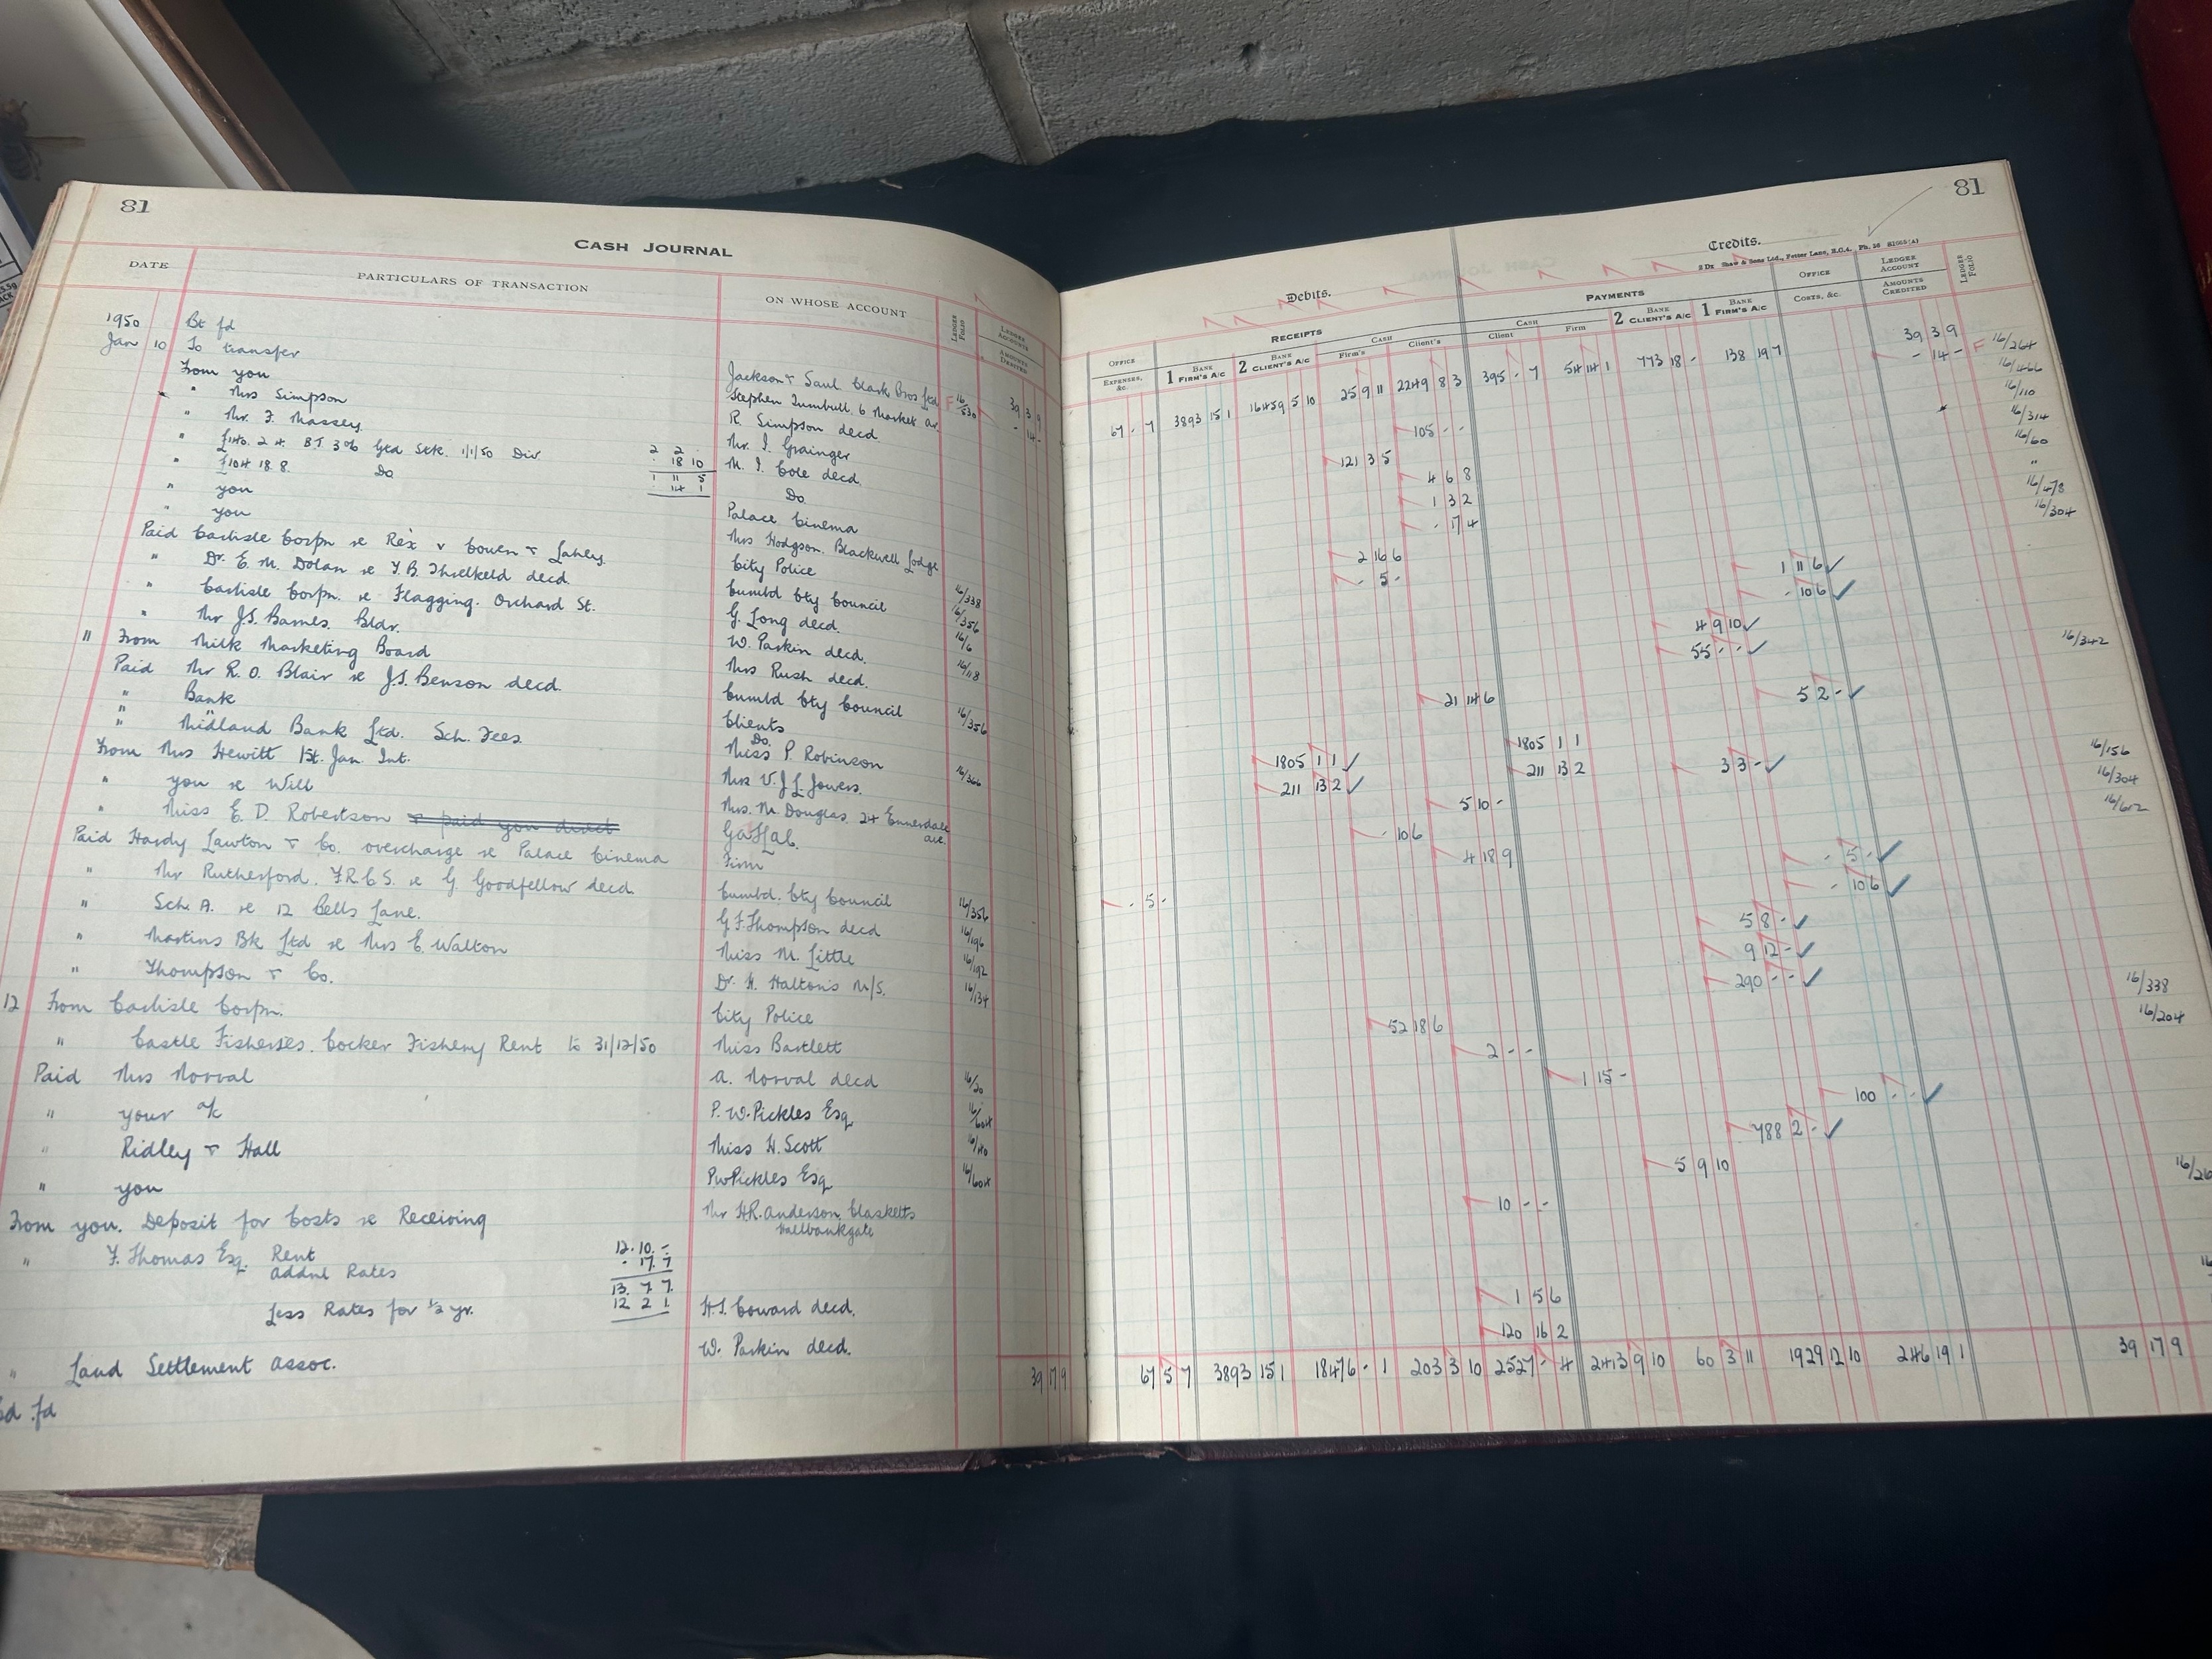 81
CASH JOURNAL
DATE PARTICULARS OF TRANSACTION ON WHOSE ACCOUNT LEDGER FOLIO LEDGER ACCOUNTS AMOUNTS DEBITED
1950 Bt fd
Jan 10 To transfer Jackson & Saul Clark Bros Ltd F 16/530 39 3 9
From you Stephen Turnbull 6 Market - 14 -
" Mrs Simpson R. Simpson decd
" Mr. F. Massey Mr. I. Grainger
" £140. 2. 4. B.T. 3% Gtd Stk. 1/1/50 Div 2 2 18 10 M. I. Cole decd.
" £104 18. 8. Do 1 11 5 14 1 Do
" you Palace Cinema
" you Mrs Hodgson. Blackwell Lodge
Paid Carlisle Corpn re Rex v Cowen & Lahey City Police 16/338
" Dr. E. M. Dolan re T.B. Threlkeld decd. Cumbld Cty Council 16/356
" Carlisle Corpn. re Flagging. Orchard St. G. Long decd. 16/6
" Mr J.S. Barnes. Bldr. W. Parkin decd. 16/118
11 From Milk Marketing Board Mrs Rush decd.
Paid Mr R. O. Blair re J.S. Benson decd. Cumbld Cty Council 16/356
" Bank Clients
" " Do.
" Midland Bank Ltd. Sch. Fees. Miss P. Robinson 16/366
From Mrs Hewitt 1st. Jan. Int. Mrs V.J.L. Jowers.
" you re Will Mrs. M. Douglas. 24 Ennerdale ave.
" Miss E. D. Robertson & paid you direct
Paid Hardy Lawton & Co. overcharge re Palace Cinema Firm
" Mr Rutherford. F.R.C.S. re G. Goodfellow decd Cumbd. Cty Council 16/356
" Sch. A. re 12 Cells Lane. G F. Thompson decd 16/196
" Martins Bk Ltd re Mrs E. Walton Miss M. Little 16/192
" Thompson & Co. Dr. H. Halton's M/S. 16/134
12 From Carlisle Corpn. City Police
" Castle Fisheries. Cocker Fishery Rent to 31/12/50 Miss Bartlett
Paid Mrs Norval A. Norval decd 16/20
" your a/c P. W. Pickles Esq 16/604
" Ridley & Hall Miss H. Scott 16/40
" you PW Pickles Esq 16/604
From you. Deposit for Costs re Receiving Mr H.R. Anderson Clasketts Hallbankgate
" F. Thomas Esq. Rent 12. 10. -
Addnl Rates - 17. 7
13. 7 7.
Less Rates for ½ yr. 12 2 1 H.S. Coward decd.
" Land Settlement Assoc. W. Parkin decd.
fd 39 17 9
81
Debits. Credits.
2 Dx Shaw & Sons Ltd., Fetter Lane, E.C.4.
RECEIPTS PAYMENTS
OFFICE EXPENSES, &c. 1 BANK FIRM'S A/C 2 BANK CLIENT'S A/C CASH Firm's Client's CASH Client Firm 2 BANK CLIENT'S A/C 1 BANK FIRM'S A/C OFFICE COSTS, &c. LEDGER ACCOUNT AMOUNTS CREDITED LEDGER FOLIO
67 - 7 3893 15 1 16459 5 10 25 9 11 2249 8 3 395 - 7 54 14 1 773 18 - 138 19 7
39 3 9 16/264
- 14 - F 16/466
105 - - 16/110
121 3 5 16/314
4 6 8 16/60
1 3 2 "
- 17 4 16/478
2 16 6 16/304
- 5 -
1 11 6
- 10 6
4 9 10
55 - -
21 14 6 16/342
5 2 -
1805 1 1 1805 1 1
211 13 2 211 13 2
33 -
5 10 - 16/156
- 10 6 16/304
4 18 9 16/612
- 5 - - 5 -
- 10 6
58 -
9 12 -
290 - -
52 18 6 16/338
2 - - 16/204
1 15 -
100 - -
788 2 -
5 9 10
10 - -
1 5 6
120 16 2
67 5 7 3893 15 1 18476 - 1 203 3 10 2527 - 4 2413 9 10 60 3 11 1929 12 10 246 19 1 39 17 9